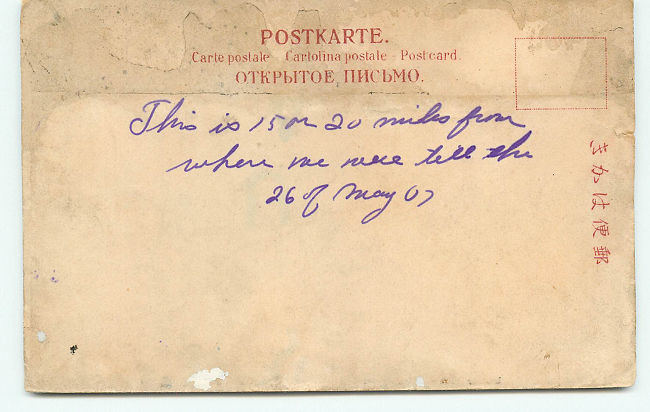 POSTKARTE.
Carte postale - Cartolina postale - Postcard.
ОТКРЫТОЕ ПИСЬМО.
This is 15 or 20 miles from
where we were till the
26 of May 07
きかは便郵